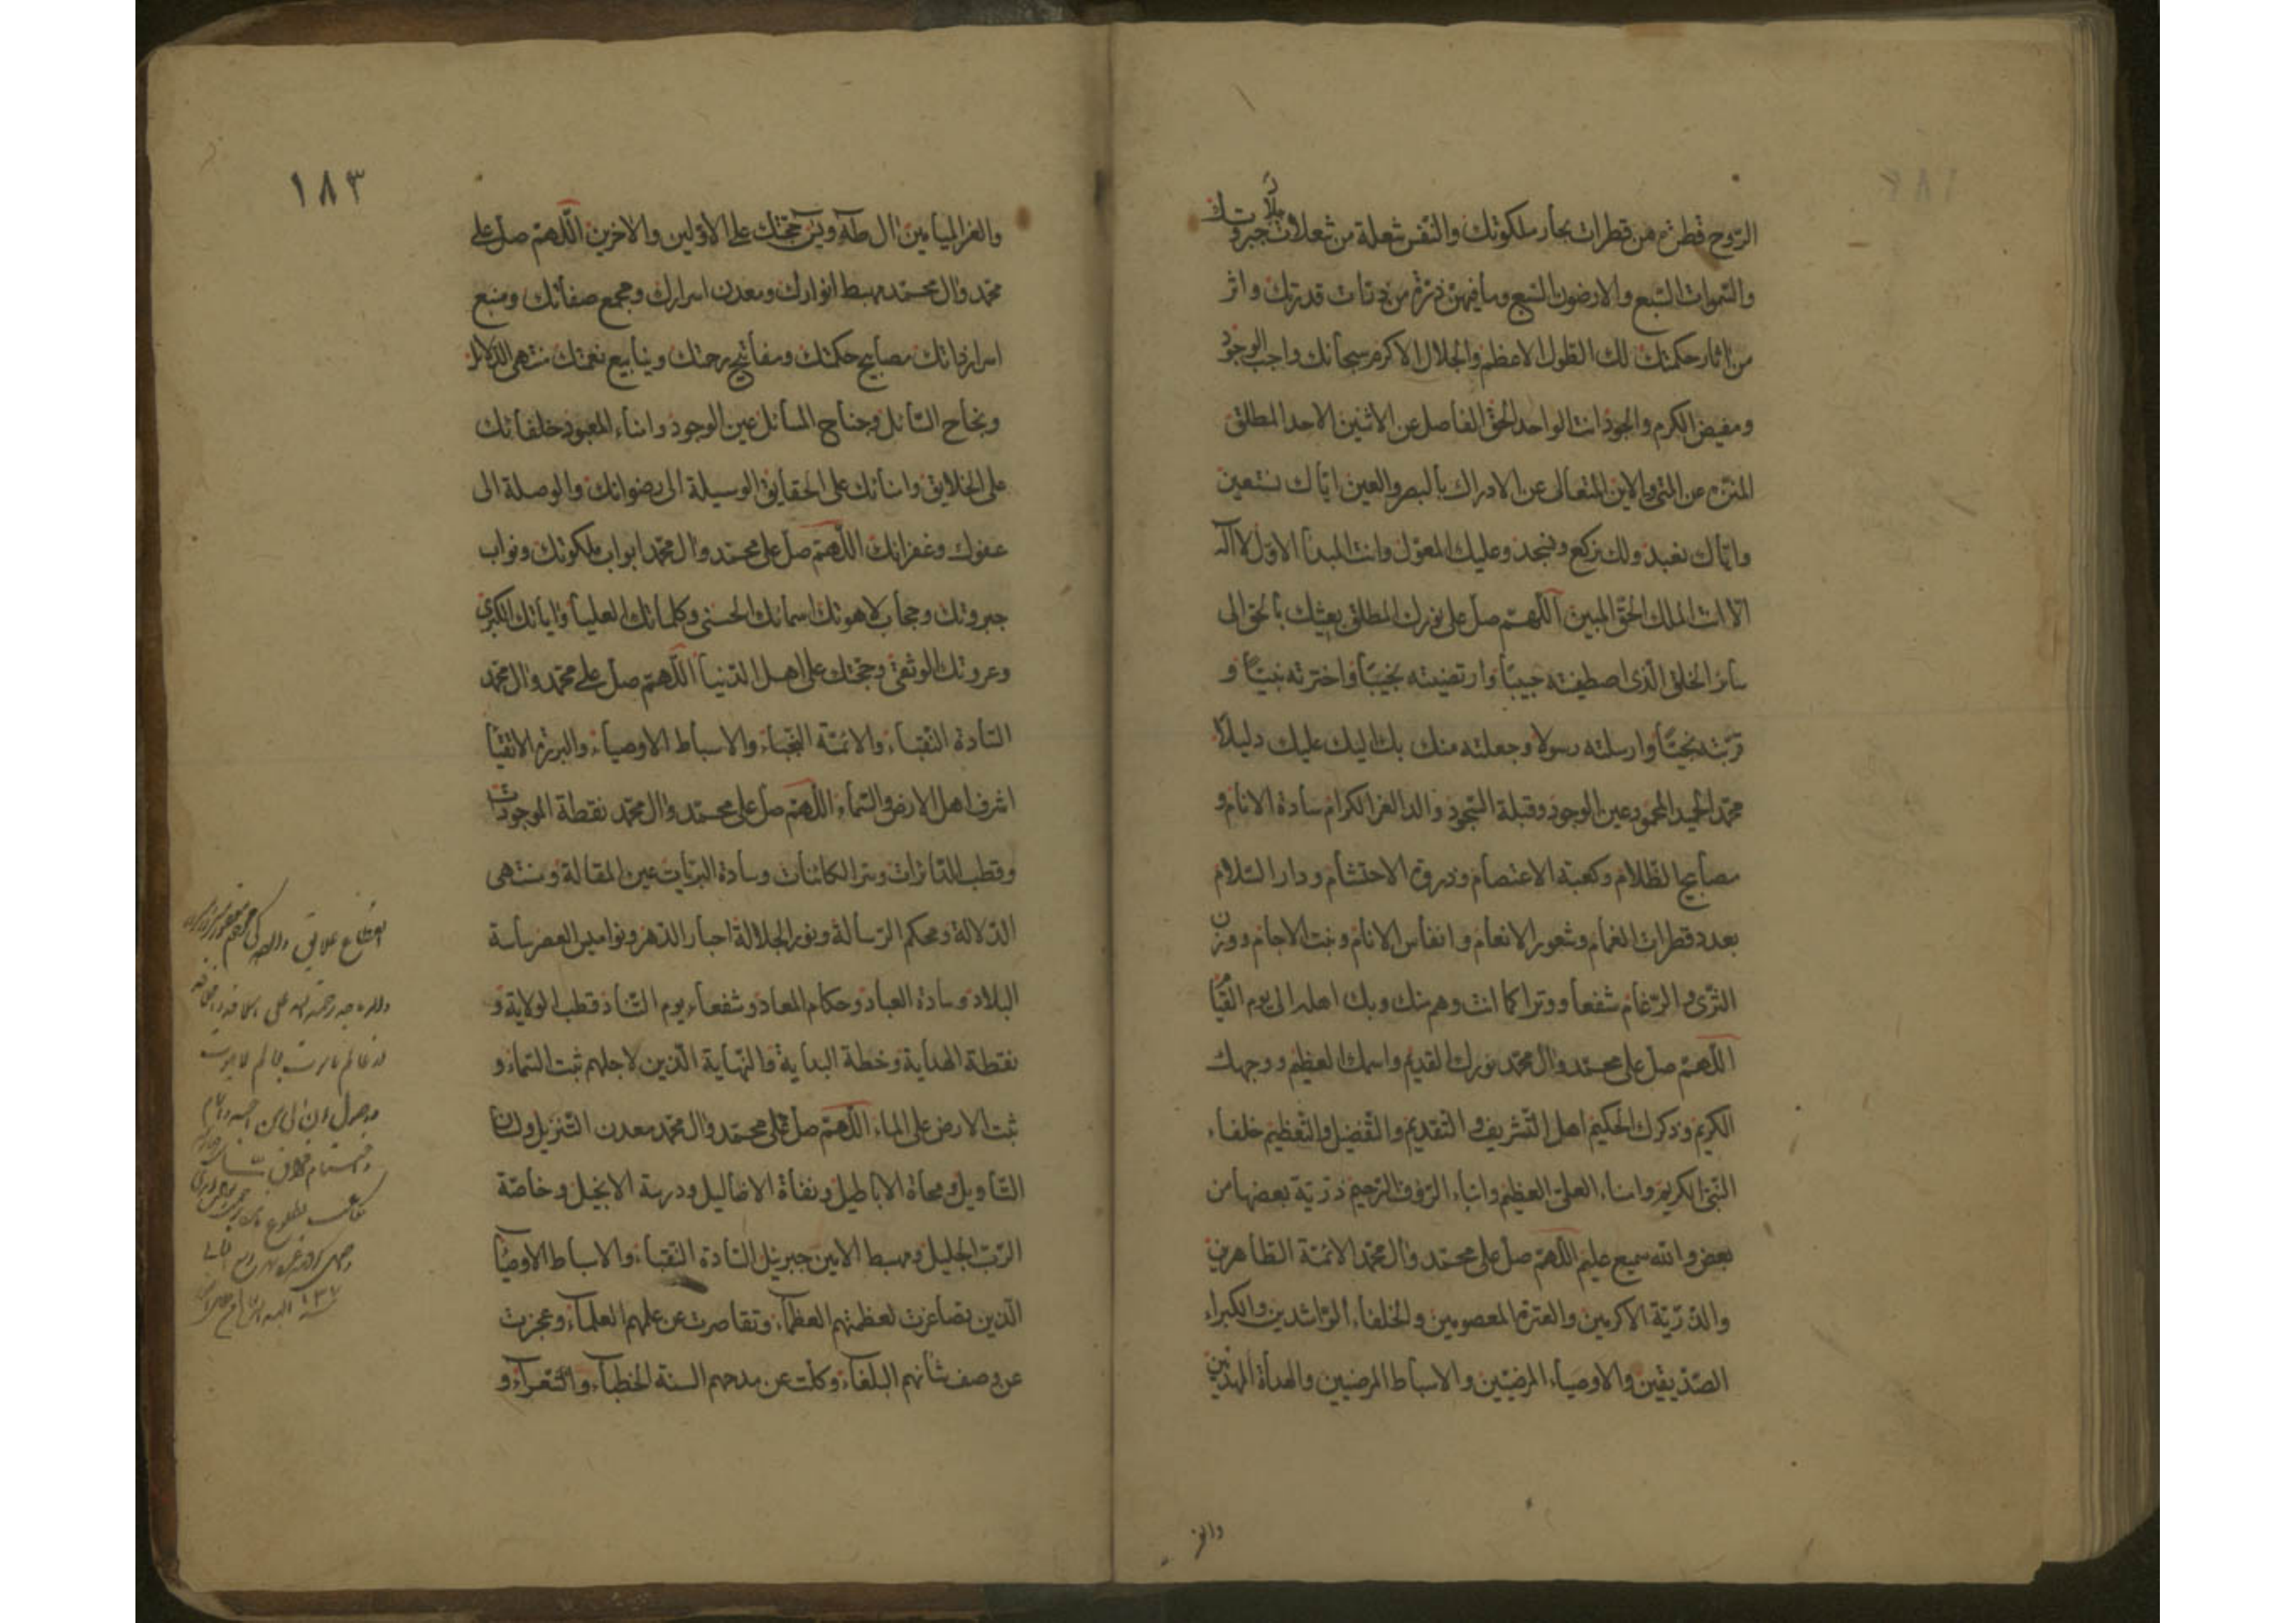 الروح قطرة من قطرات بحار ملكوتك والنفس شعلة من شعلات جبروتك
والسموات السبع والارضون السبع وما فيهن ذرة من ذرات قدرتك واثر
من اثار حكمتك لك الطول الاعظم والجلال الاكرم سبحانك واجب الوجود
ومفيض الكرم والجود انت الواحد الحق الفاصل عن الاثنين الاحد المطلق
المنزه عن المتى والاين المتعالى عن الادراك بالبصر والعين اياك نستعين
واياك نعبد ولك نركع ونسجد وعليك المعول وانت المبدأ الاول لا اله
الا انت الملك الحق المبين اللهم صل على نورك المطلق بعيثك بالحق الى
سائر الخلق الذى اصطفيته حبيبا وارتضيته نجيبا واخترته نبيا و
قربته نجيا وارسلته رسولا وجعلته منك بك اليك عليك دليلا
محمد الحميد المحمود عين الوجود وقبلة السجود واله الغر الكرام سادة الانام و
مصابيح الظلام وكعبة الاعتصام وذروة الاحتشام ودار السلام
بعدد قطرات الغمام وشعور الانعام وانفاس الانام ونبت الاجام ووزن
الثرى والرغام شفعا ووترا كما انت وهم منك وبك اهله الى يوم القيام
اللهم صل على محمد وال محمد نورك القديم واسمك العظيم ووجهك
الكريم وذكرك الحكيم اهل التشريف والتقديم والتفضل والتعظيم خلفاء
النبى الكريم وامناء العلى العظيم وابناء الرؤف الرحيم ذرية بعضها من
بعض والله سميع عليم اللهم صل على محمد وال محمد الائمة الطاهرين
والذرية الاكرمين والعترة المعصومين والخلفاء الراشدين والكبراء
الصديقين والاوصياء المرضيين والاسباط المرضيين والهداة المهديين
والغر
١٨٣
والغر الميامين ال طه ويس حججك على الاولين والاخرين اللهم صل على
محمد وال محمد مهبط انوارك ومعدن اسرارك ومجمع صفاتك ومنبع
اسرار ذاتك مصابيح حكمتك ومفاتيح رحمتك وينابيع نعمتك منتهى الدلائل
ونجاح السائل وجناح المسائل عين الوجود وامناء المعبود خلفائك
على الخلايق وامنائك على الحقايق الوسيلة الى رضوانك والوصلة الى
عفوك وغفرانك اللهم صل على محمد وال محمد ابواب ملكوتك ونواب
جبروتك وحجاب لاهوتك اسمائك الحسنى وكلماتك العليا واياتك الكبرى
وعروتك الوثقى وحججك على اهل الدنيا اللهم صل على محمد وال محمد
السادة النقباء والائمة النجباء والاسباط الاوصياء والبررة الاتقيا
اشرف اهل الارض والسماء اللهم صل على محمد وال محمد نقطة الموجودات
وقطب الدائرات وسر الكائنات وسادة البريات عين المقالة ومنتهى
الدلالة ومحكم الرسالة ونور الجلالة احبار الدهر ونواميس العصر ساسة
البلاد وسادة العباد وحكام المعاد وشفعاء يوم التناد قطب الولاية و
نقطة الهداية وخطة البداية والنهاية الذين لاجلهم ثبت السماء و
ثبت الارض على الماء اللهم صل على محمد وال محمد معدن التنزيل ولسان
التاويل ومحاة الاباطيل ونفاة الاضاليل ودرسة الانجيل وخاصة
الرب الجليل ومهبط الامين جبريئل السادة النقباء والاسباط الاوصيا
الذين تصاغرت لعظمتهم العظماء وتقاصرت عن علمهم العلماء وعجزت
عن وصف شانهم البلغاء وكلت عن مدحهم السنة الخطباء والشعراء و